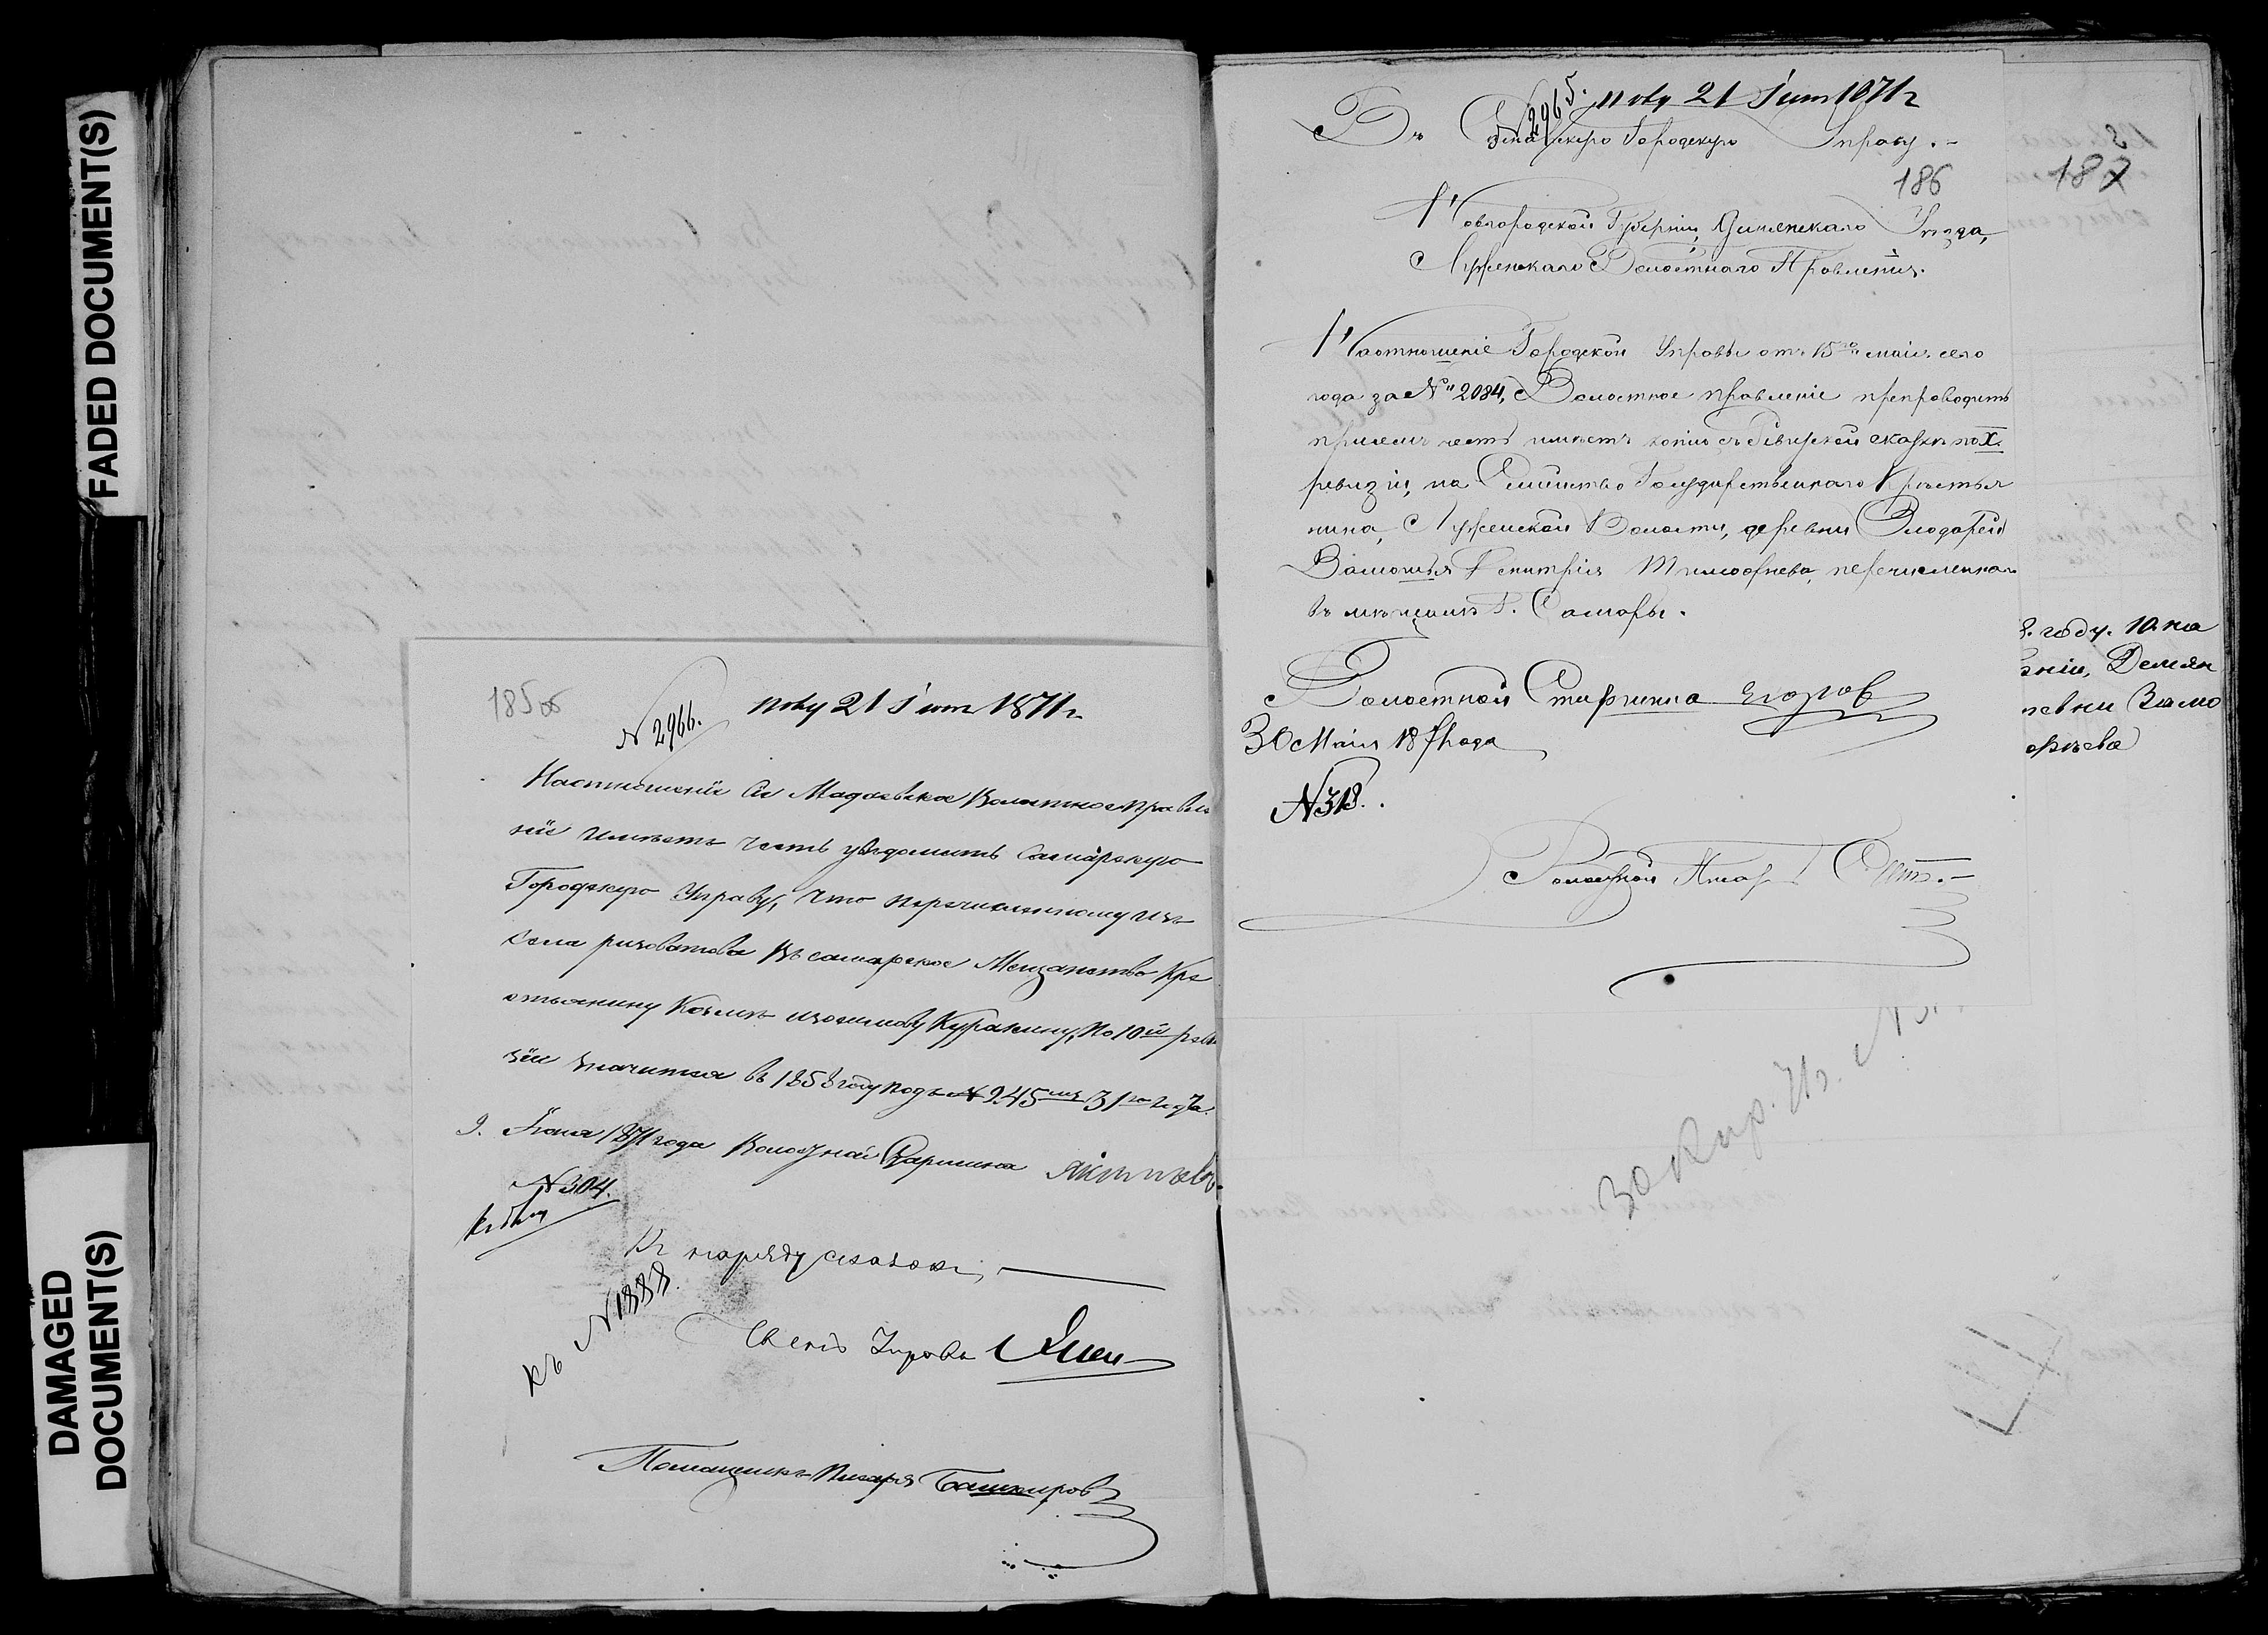 FADED DOCUMENT(S)
DAMAGED
DOCUMENT(S)
185
№ 2966. 21 1871 г
Наотношеніе Волостное правле
ніе имѣетъ честь увѣдомить Самарскую
Городскую Управу, что перечисленному изъ
села ризоватова въ самарское Мещанство Кре
стьянину Козмѣ Куракину, по 10й реви
зіи значится въ 1858 году подъ № 245мъ 31го года.
9. Іюня 1871 года Волостной Старшина
№ 304.
Къ наряду сказокъ,
къ № 1888.
Членъ Управы
Помощникъ Писаря Башкировъ
№ 2965. 21 1871 г
Въ Самарскую Городскую Управу.
186
187
2
Новгородской Губерніи, Демянскаго Уѣзда,
Луженскаго Волостнаго Правленія.
Наотношеніе Городской Управы отъ 15го мая сего
года за № 2084, Волостное правленіе препроводить
присемъ честь имѣетъ копію съ Ревизской сказки по X.
ревизіи, на Семейство Государственнаго Крестья
нина, Луженской Волости, деревни
Дмитрія Тимофеева, перечисленнаго
въ мѣщане Г. Самары.
Волостной Старшина Егоров
30 Мая 1871 года
№ 318.
Волостной Писарь
г. году. 10. на
зніи, Демян
евни Замо
орѣева